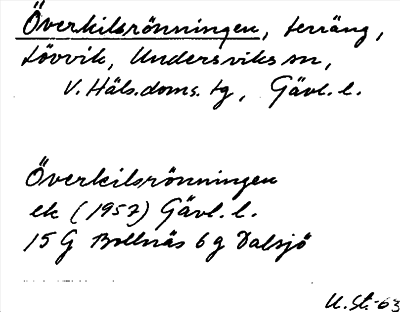 Överkilsrönningen, terräng,
Lövvik, Undersviks sn,
V. Häls. doms. tg, Gävl. l.
Överkilsrönningen
ek (1957) Gävl. l.
15 G Bollnäs 6 g Dalsjö
U. St. -63